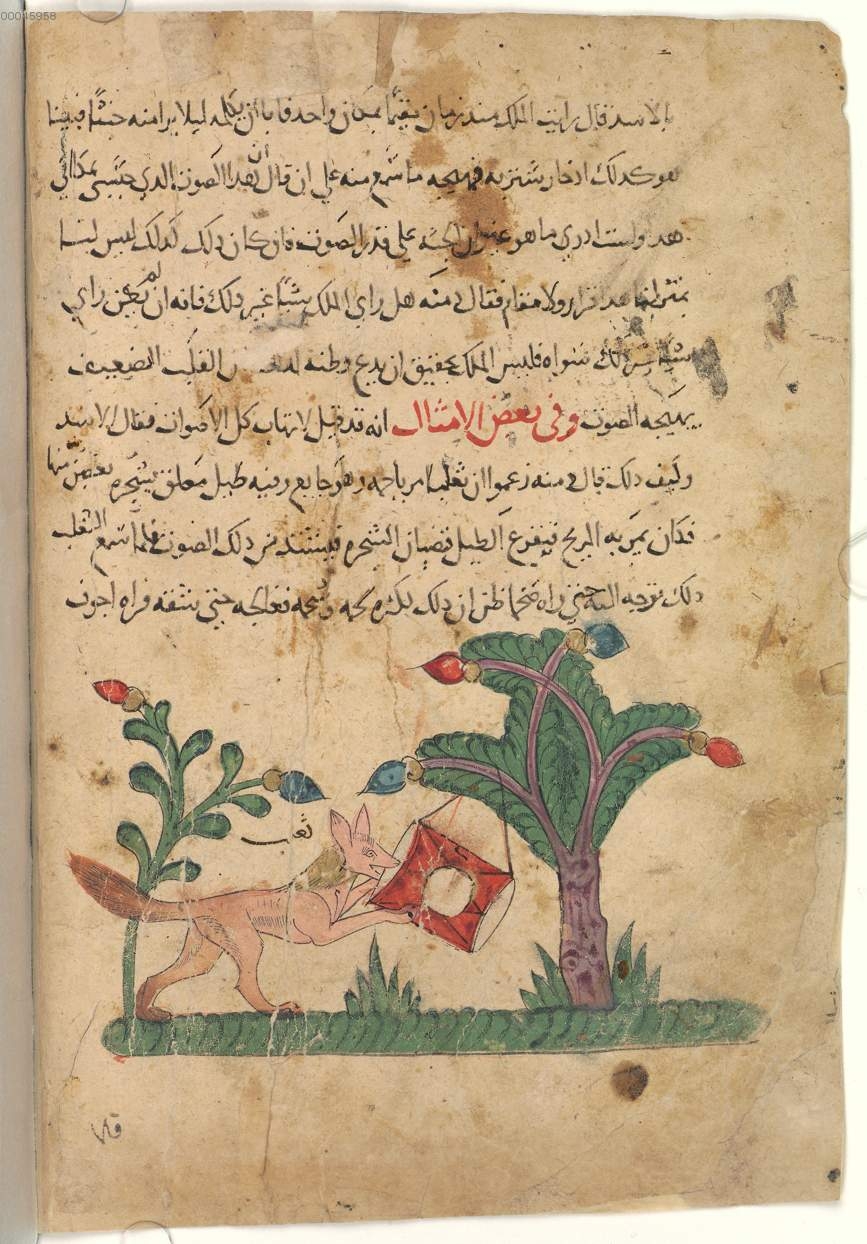 00045958
بالاسد قال رايت الملك منذ زمان مقيما بمكان واحد فابا ان يكلمه ليلا يرا منه جبنا فبينا
هو كذلك اذ خار شتربه فهيجه ما سمع منه علي ان قال ان هذا الصوت الذي حبسني بمكاني
هدا ولست ادري ما هو غير ان الجثه علي قدر الصوت فان كان ذلك كذلك ليس لنا
قرار ولا مقام فقال دمنه هل راي الملك شيئا غير ذلك فانه ان لم يكن راي
شيئا سواه فليس الملك بحقيق ان يدع وطنه القلب الضعيف
يهيجه الصوت وفي بعض الامثال انه قد قيل لا تهاب كل الاصوات فقال الاسد
وكيف ذلك قال دمنه زعموا ان ثعلبا مر باجمه وهو جايع وفيه طبل معلق بشجره
فكان يمر به الريح فيقرع الطبل قضبان الشجره فيشتد من ذلك الصوت فلما سمع الثعلب
ذلك توجه اليه حتي راه ضخما ظن ان ذلك لكثره لحمه وشحمه فعالجه حتي شقه فراه اجوف
ثعلب
قال